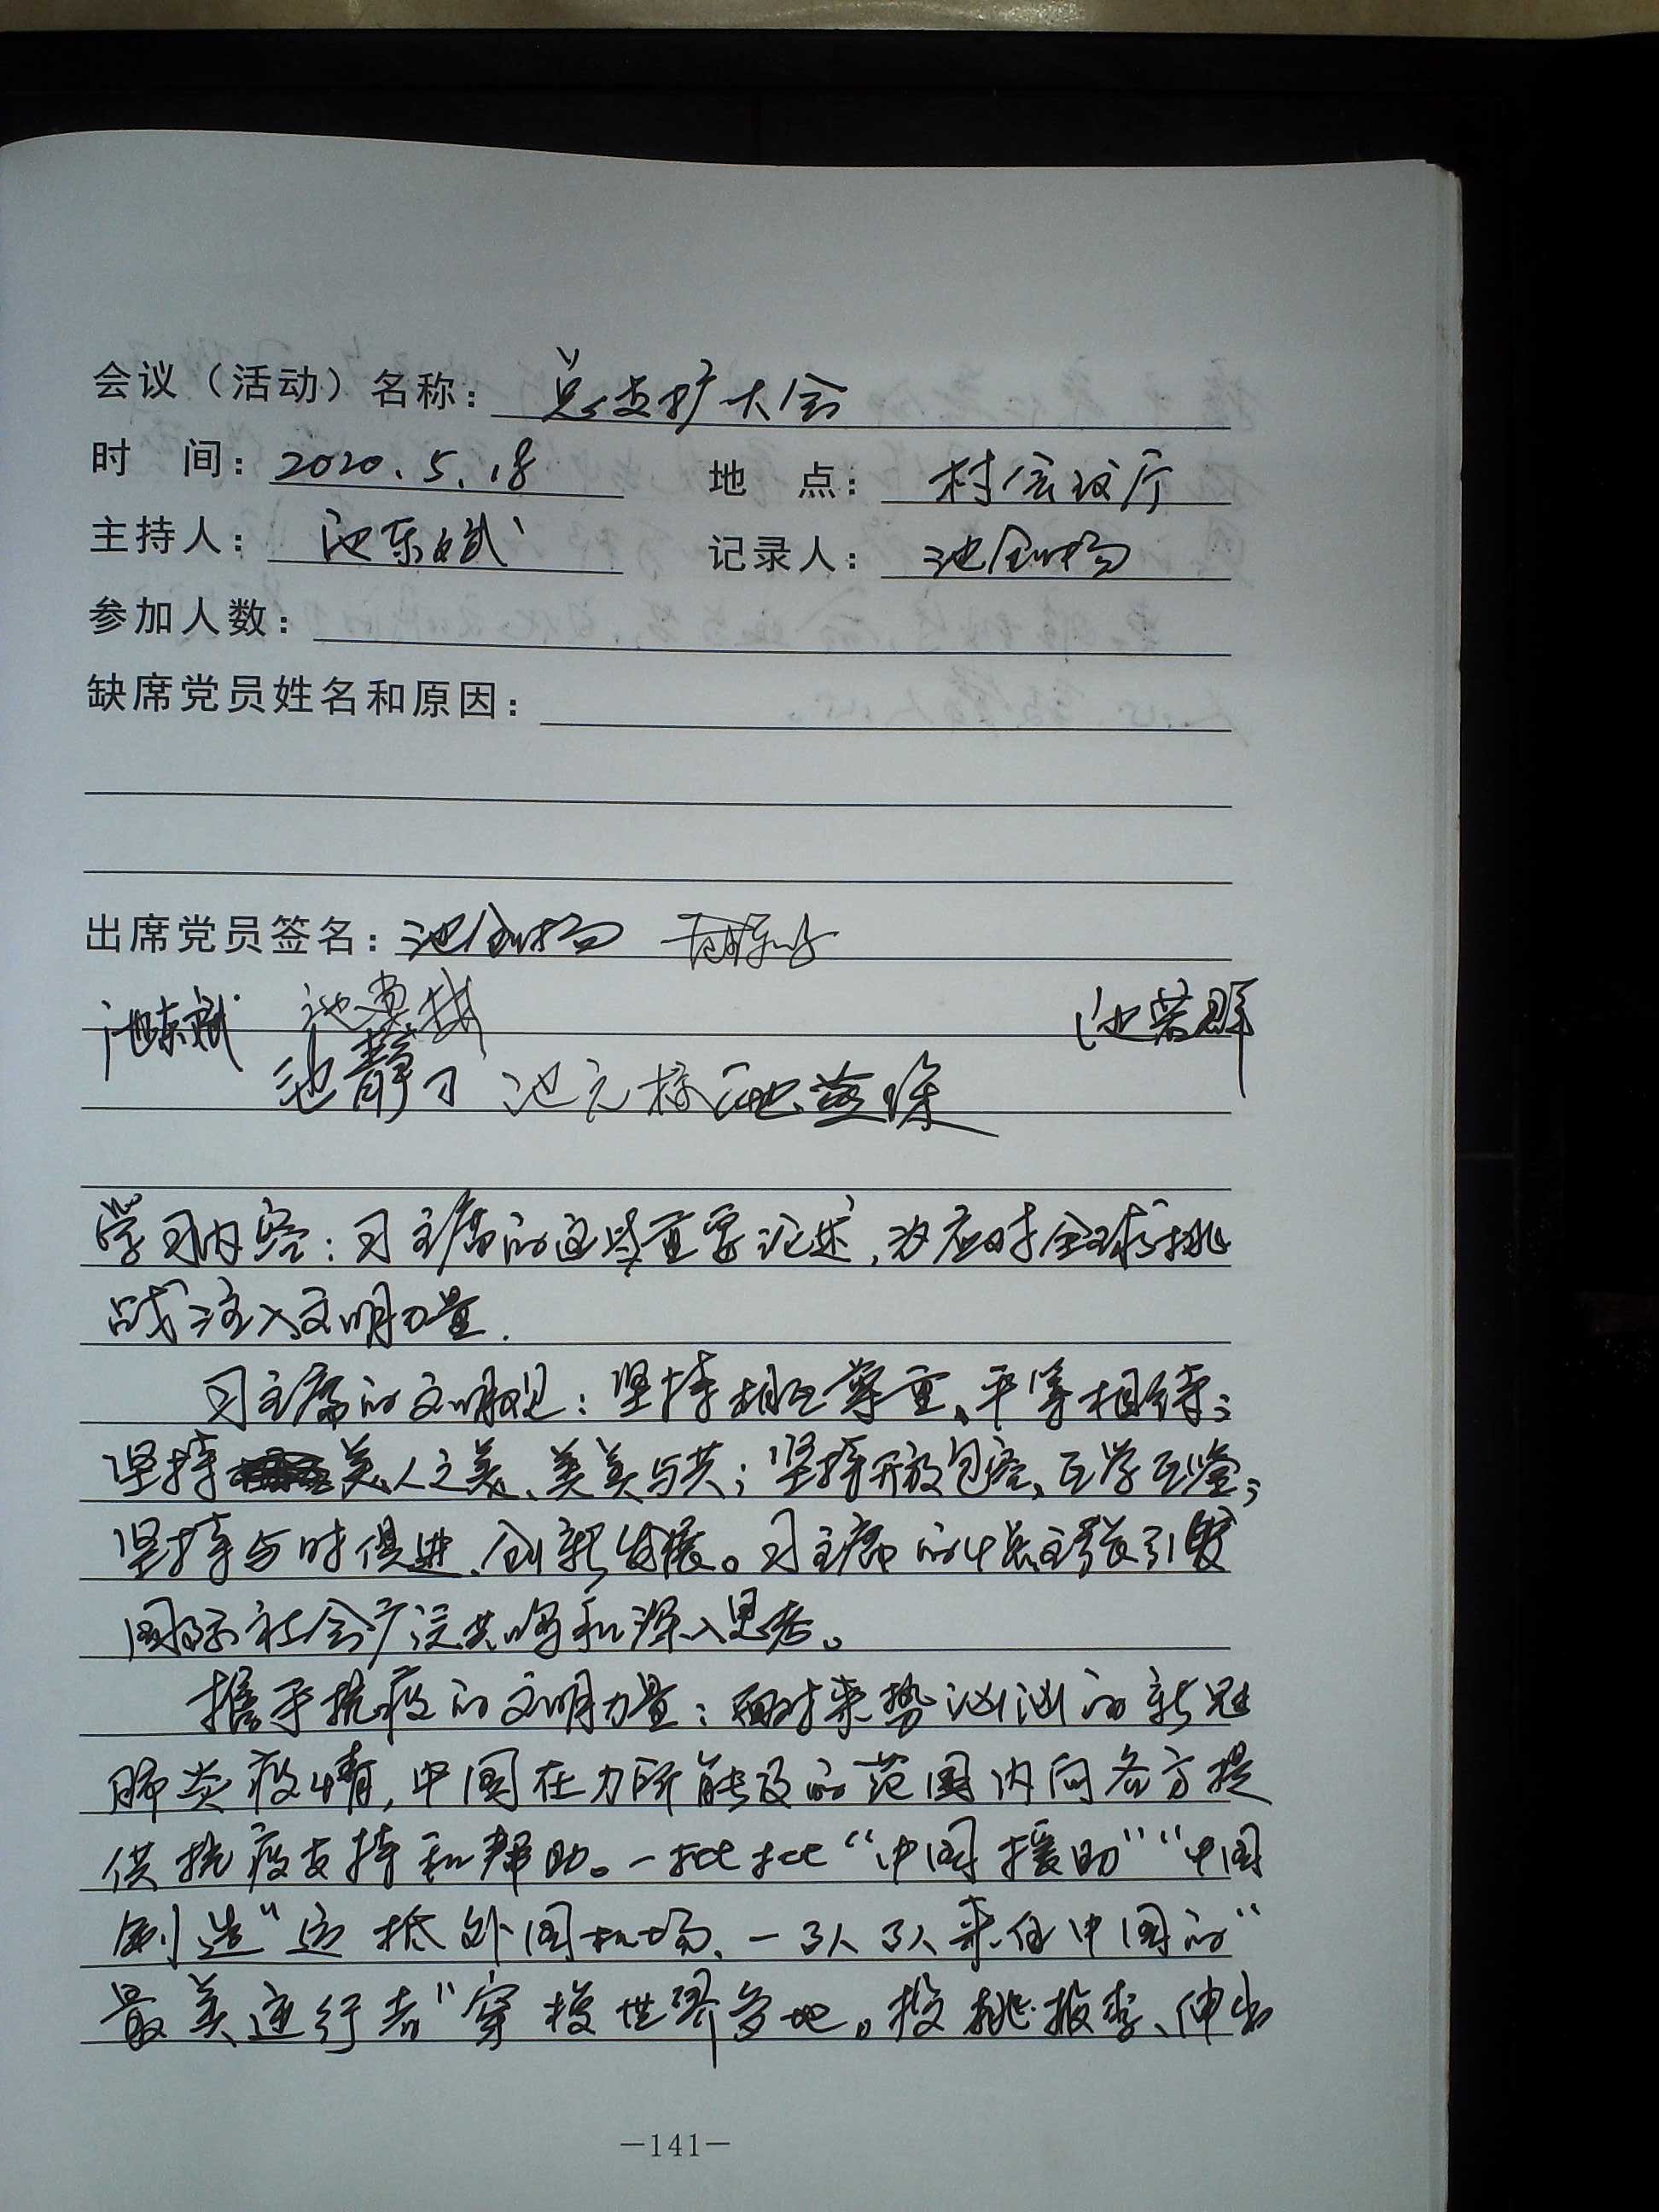 会议（活动）名称：总支扩大会
时 间：2020.5.18 地 点：村会议厅
主持人：池东斌 记录人：池
参加人数：
缺席党员姓名和原因：
出席党员签名：池
池东斌 池 池若群
池静 池元 池
学习内容：习主席的这些重要论述，为应对全球挑
战注入文明力量.
习主席的文明观：坚持相互尊重、平等相待；
坚持美人之美、美美与共；坚持开放包容、互学互鉴；
坚持与时俱进、创新发展。习主席的4点主张引发
国际社会广泛共鸣和深入思考。
携手抗疫的文明力量：面对来势汹汹的新冠
肺炎疫情，中国在力所能及的范围内向各方提
供抗疫支持和帮助。一批批“中国援助”“中国
制造”运抵外国机场、一队队来自中国的“
最美逆行者”穿梭世界多地。投桃报李、伸出
—141—